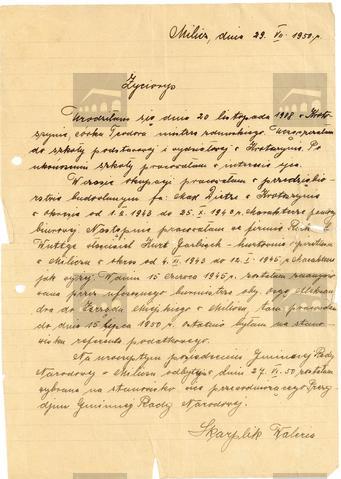 Milicz, dnia 29. VII. 1950 r.
Życiorys
Urodziłam się dnia 20 listopada 1918 w Kroto-
szynie, córka Teodora mistrza zduńskiego. Uczęszczałam
do szkoły podstawowej i wydziałowej w Krotoszynie. Po
ukończeniu szkoły pracowałam w interesie ojca.
W czasie okupacji pracowałam w przedsiębior-
stwie budowlanym fa: Dietze w Krotoszynie
w okresie od 1. 2. 1943 do 25. X. 1943, charakterze pomocy
biurowej. Następnie pracowałam w firmie
właściciel Kurt
w Miliczu w okresie od 4. XI 1943 do 12. I. 1945 w charakterze
jak wyżej. W dniu 15 czerwca 1945 r. zostałam zaangażo-
wana przez ówczesnego burmistrza ob.
do Zarządu Miejskiego w Miliczu, tam pracowałam
do dnia 15 lipca 1950 r. ostatnio byłam na stano-
wisku referenta podatkowego.
Na uroczystym posiedzeniu Gminnej Rady
Narodowej w Miliczu odbytej w dniu 27. VI. 50, zostałam
wybrana na stanowisko vice przewodniczącego Prezy-
djum Gminnej Rady Narodowej.
Skarplik